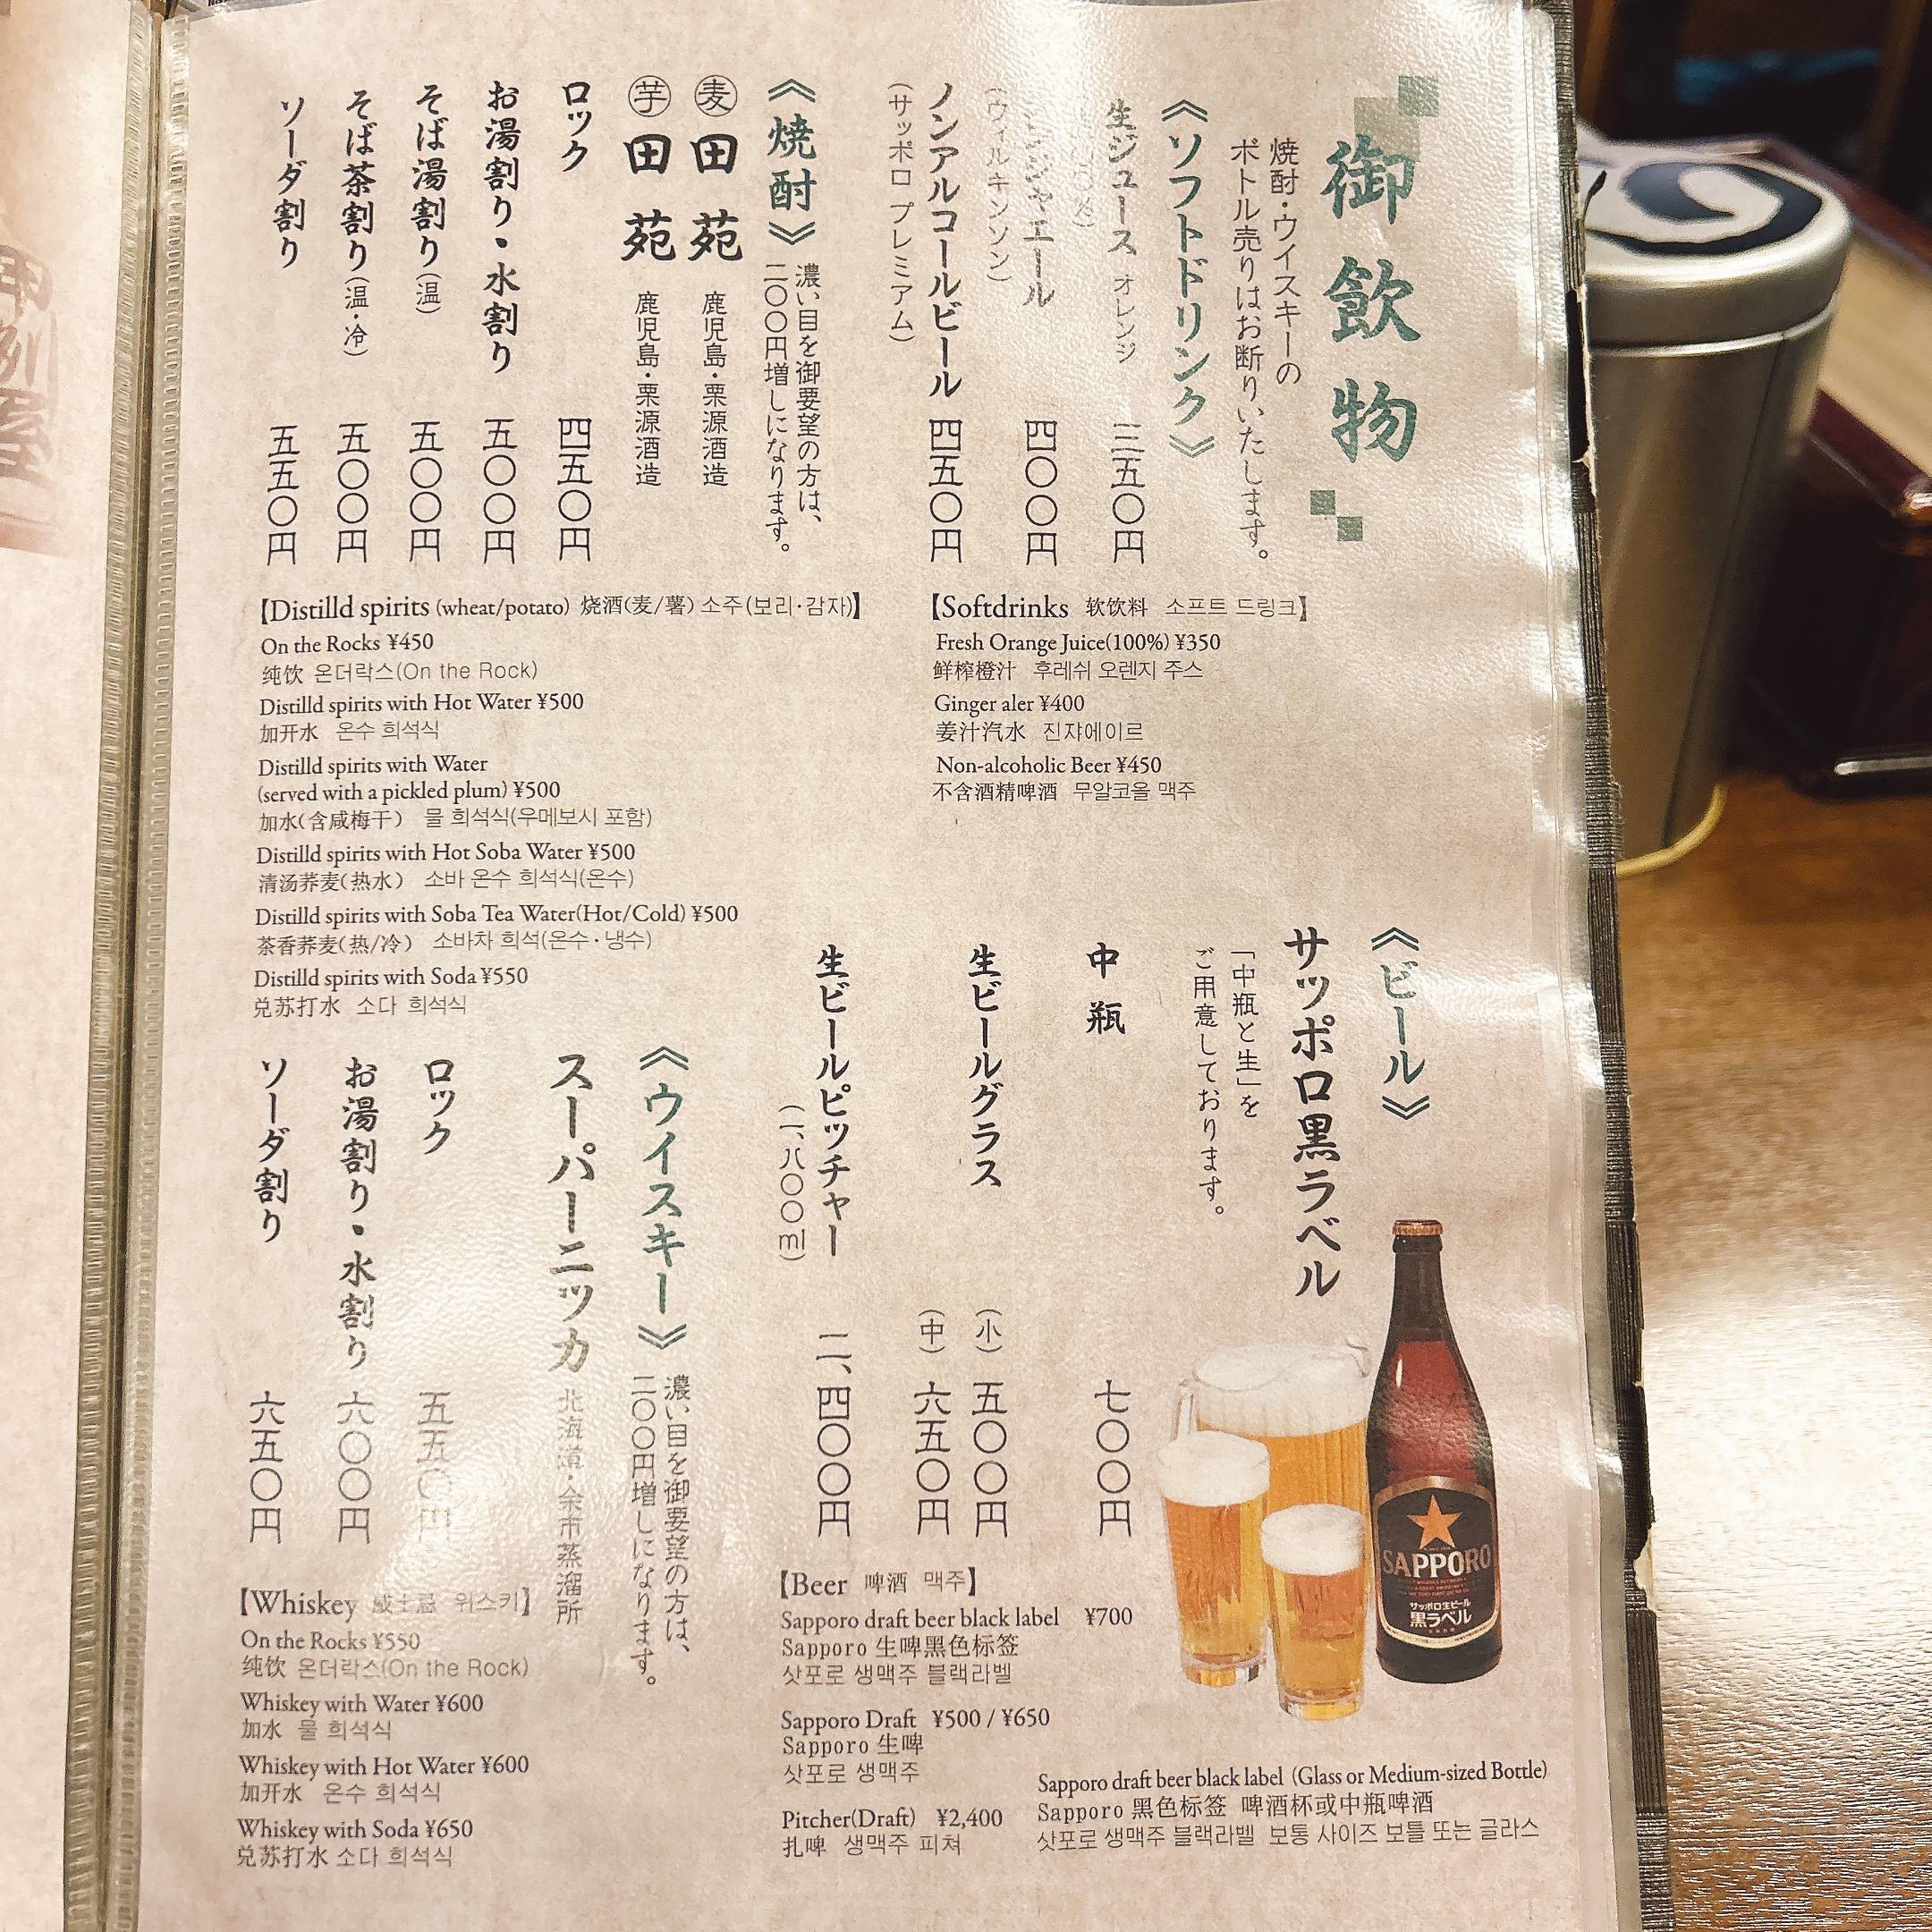 御飲物
焼酎・ウイスキーの
ボトル売りはお断りいたします。
《ソフトドリンク》
生ジュース オレンジ 三五〇円
ジンジャエール 四〇〇円
(ウィルキンソン)
ノンアルコールビール 四五〇円
(サッポロ プレミアム)
《焼酎》
濃い目を御要望の方は、
二〇〇円増しになります。
麦 田苑 鹿児島・栗源酒造
芋 田苑 鹿児島・栗源酒造
ロック 四五〇円
お湯割り・水割り 五〇〇円
そば湯割り(温) 五〇〇円
そば茶割り(温・冷) 五〇〇円
ソーダ割り 五五〇円
【Softdrinks 软饮料 소프트 드링크】
Fresh Orange Juice(100%) ¥350
鲜榨橙汁 후레쉬 오렌지 주스
Ginger aler ¥400
姜汁汽水 진쟈에이르
Non-alcoholic Beer ¥450
不含酒精啤酒 무알코올 맥주
【Distilld spirits (wheat/potato) 烧酒(麦/薯) 소주(보리·감자)】
On the Rocks ¥450
纯饮 온더락스(On the Rock)
Distilld spirits with Hot Water ¥500
加开水 온수 희석식
Distilld spirits with Water
(served with a pickled plum) ¥500
加水(含咸梅干) 물 희석식(우메보시 포함)
Distilld spirits with Hot Soba Water ¥500
清汤荞麦(热水) 소바 온수 희석식(온수)
Distilld spirits with Soba Tea Water(Hot/Cold) ¥500
茶香荞麦(热/冷) 소바차 희석(온수·냉수)
Distilld spirits with Soda ¥550
兑苏打水 소다 희석식
《ビール》
サッポロ黒ラベル
「中瓶と生」を
ご用意しております。
中瓶 七〇〇円
生ビールグラス (小) 五〇〇円
(中) 六五〇円
生ビールピッチャー 二、四〇〇円
(一、八〇〇ml)
SAPPORO
サッポロ生ビール
黒ラベル
《ウイスキー》
濃い目を御要望の方は、
二〇〇円増しになります。
スーパーニッカ 北海道・余市蒸溜所
ロック 五五〇円
お湯割り・水割り 六〇〇円
ソーダ割り 六五〇円
【Beer 啤酒 맥주】
Sapporo draft beer black label ¥700
Sapporo 生啤黑色标签
삿포로 생맥주 블랙라벨
Sapporo Draft ¥500 / ¥650
Sapporo 生啤
삿포로 생맥주
Pitcher(Draft) ¥2,400
扎啤 생맥주 피쳐
Sapporo draft beer black label (Glass or Medium-sized Bottle)
Sapporo 黑色标签 啤酒杯或中瓶啤酒
삿포로 생맥주 블랙라벨 보통 사이즈 보틀 또는 글라스
【Whiskey 威士忌 위스키】
On the Rocks ¥550
纯饮 온더락스(On the Rock)
Whiskey with Water ¥600
加水 물 희석식
Whiskey with Hot Water ¥600
加开水 온수 희석식
Whiskey with Soda ¥650
兑苏打水 소다 희석식